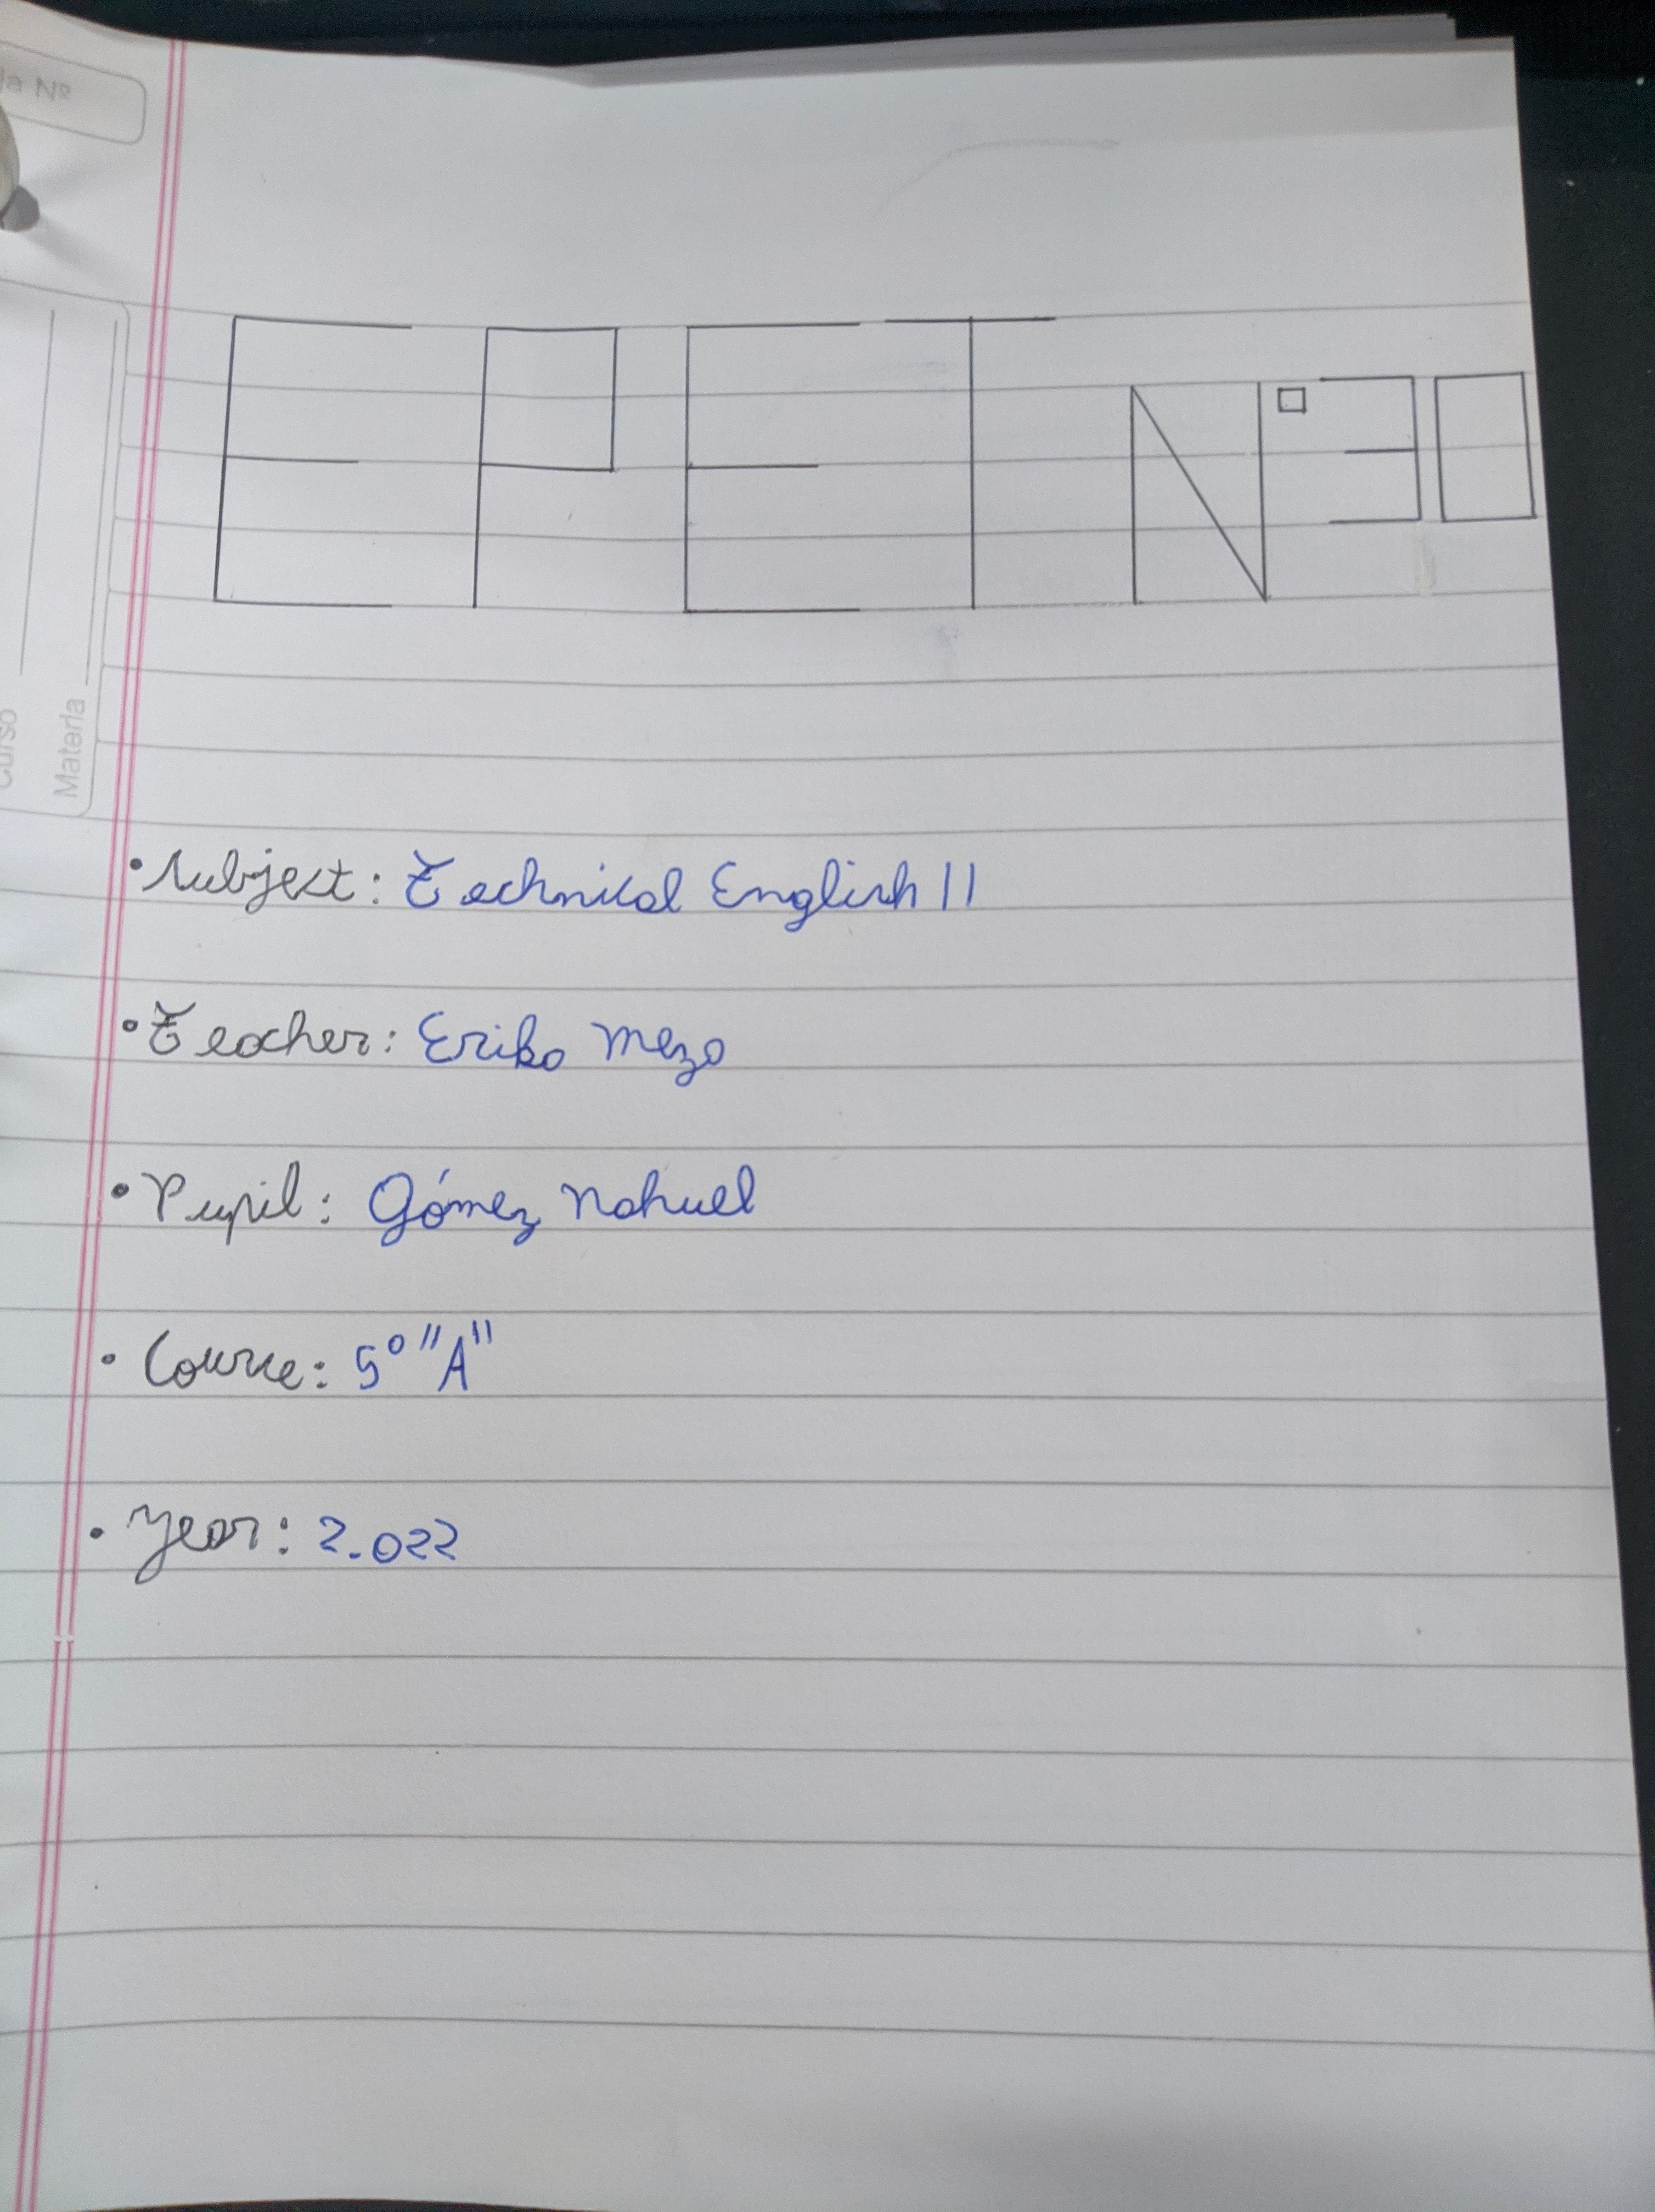 la Nº
EPET Nº30
Curso
Materia
• Subject: Technical English II
• Teacher: Erika Meza
• Pupil: Gómez Nahuel
• Course: 5º "A"
• Year: 2.022